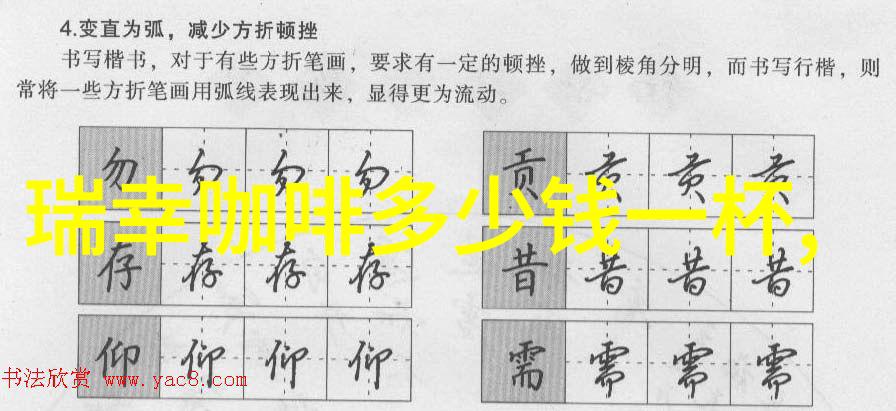 4.变直为弧，减少方折顿挫
书写楷书，对于有些方折笔画，要求有一定的顿挫，做到棱角分明，而书写行楷，则
常将一些方折笔画用弧线表现出来，显得更为流动。
勿 勿 勿 勿 贡 贡 贡 贡
瑞幸咖啡多少钱一杯,
存 存 存 存 昔 昔 昔 昔
仰 仰 仰 仰 需 需 需 需
书法欣赏 www.yac8.com